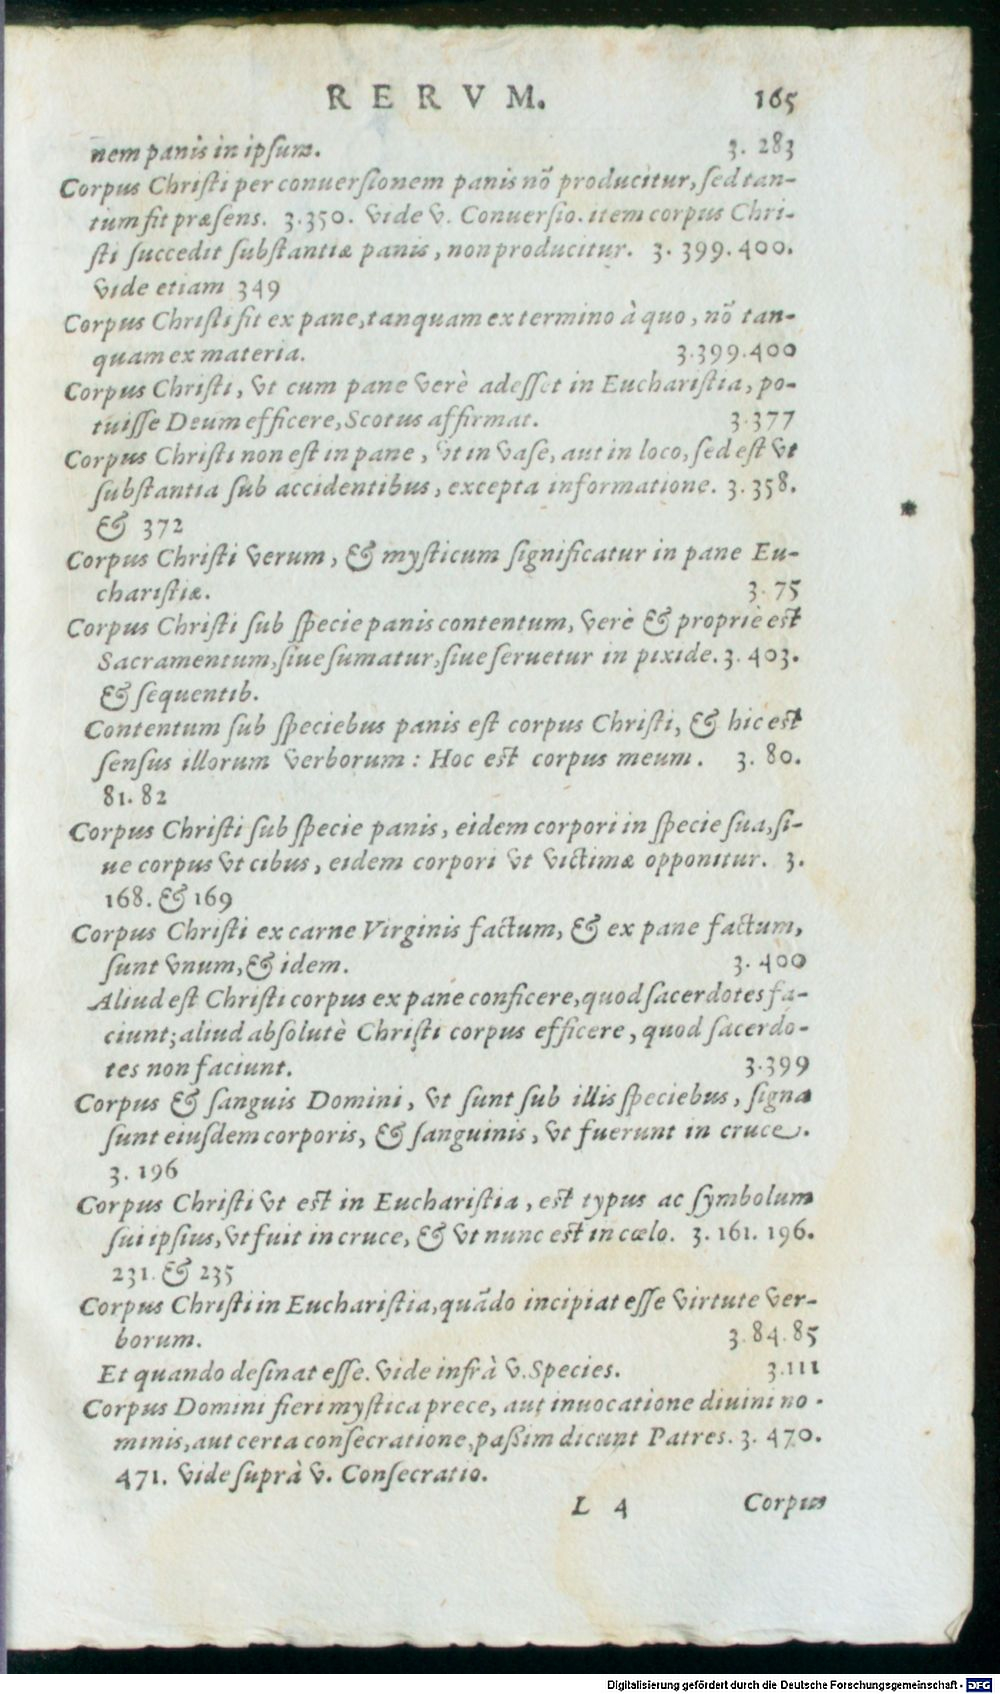 RERVM. 165
nem panis in ipsum. 3. 283
Corpus Christi per conuersionem panis nõ producitur, sed tan-
tum fit præsens. 3.350. vide v. Conuersio. item corpus Chri-
sti succedit substantiæ panis, non producitur. 3. 399. 400.
vide etiam 349
Corpus Christi fit ex pane, tanquam ex termino à quo, nõ tan-
quam ex materia. 3.399.400
Corpus Christi, vt cum pane verè adesset in Eucharistia, po-
tuisse Deum efficere, Scotus affirmat. 3.377
Corpus Christi non est in pane, vt in vase, aut in loco, sed est vt
substantia sub accidentibus, excepta informatione. 3. 358.
& 372
Corpus Christi verum, & mysticum significatur in pane Eu-
charistiæ. 3. 75
Corpus Christi sub specie panis contentum, verè & propriè est
Sacramentum, siue sumatur, siue seruetur in pixide. 3. 403.
& sequentib.
Contentum sub speciebus panis est corpus Christi, & hic est
sensus illorum verborum: Hoc est corpus meum. 3. 80.
81. 82
Corpus Christi sub specie panis, eidem corpori in specie sua, si-
ue corpus vt cibus, eidem corpori vt victimæ opponitur. 3.
168. & 169
Corpus Christi ex carne Virginis factum, & ex pane factum,
sunt vnum, & idem. 3. 400
Aliud est Christi corpus ex pane conficere, quod sacerdotes fa-
ciunt; aliud absolutè Christi corpus efficere, quod sacerdo-
tes non faciunt. 3.399
Corpus & sanguis Domini, vt sunt sub illis speciebus, signa
sunt eiusdem corporis, & sanguinis, vt fuerunt in cruce.
3. 196
Corpus Christi vt est in Eucharistia, est typus ac symbolum
sui ipsius, vt fuit in cruce, & vt nunc est in cœlo. 3. 161. 196.
231. & 235
Corpus Christi in Eucharistia, quãdo incipiat esse virtute ver-
borum. 3.84.85
Et quando desinat esse. vide infrà v. Species. 3.111
Corpus Domini fieri mystica prece, aut inuocatione diuini no-
minis, aut certa consecratione, paßim dicunt Patres. 3. 470.
471. vide suprà v. Consecratio.
L 4 Corpus
Digitalisierung gefördert durch die Deutsche Forschungsgemeinschaft - DFG